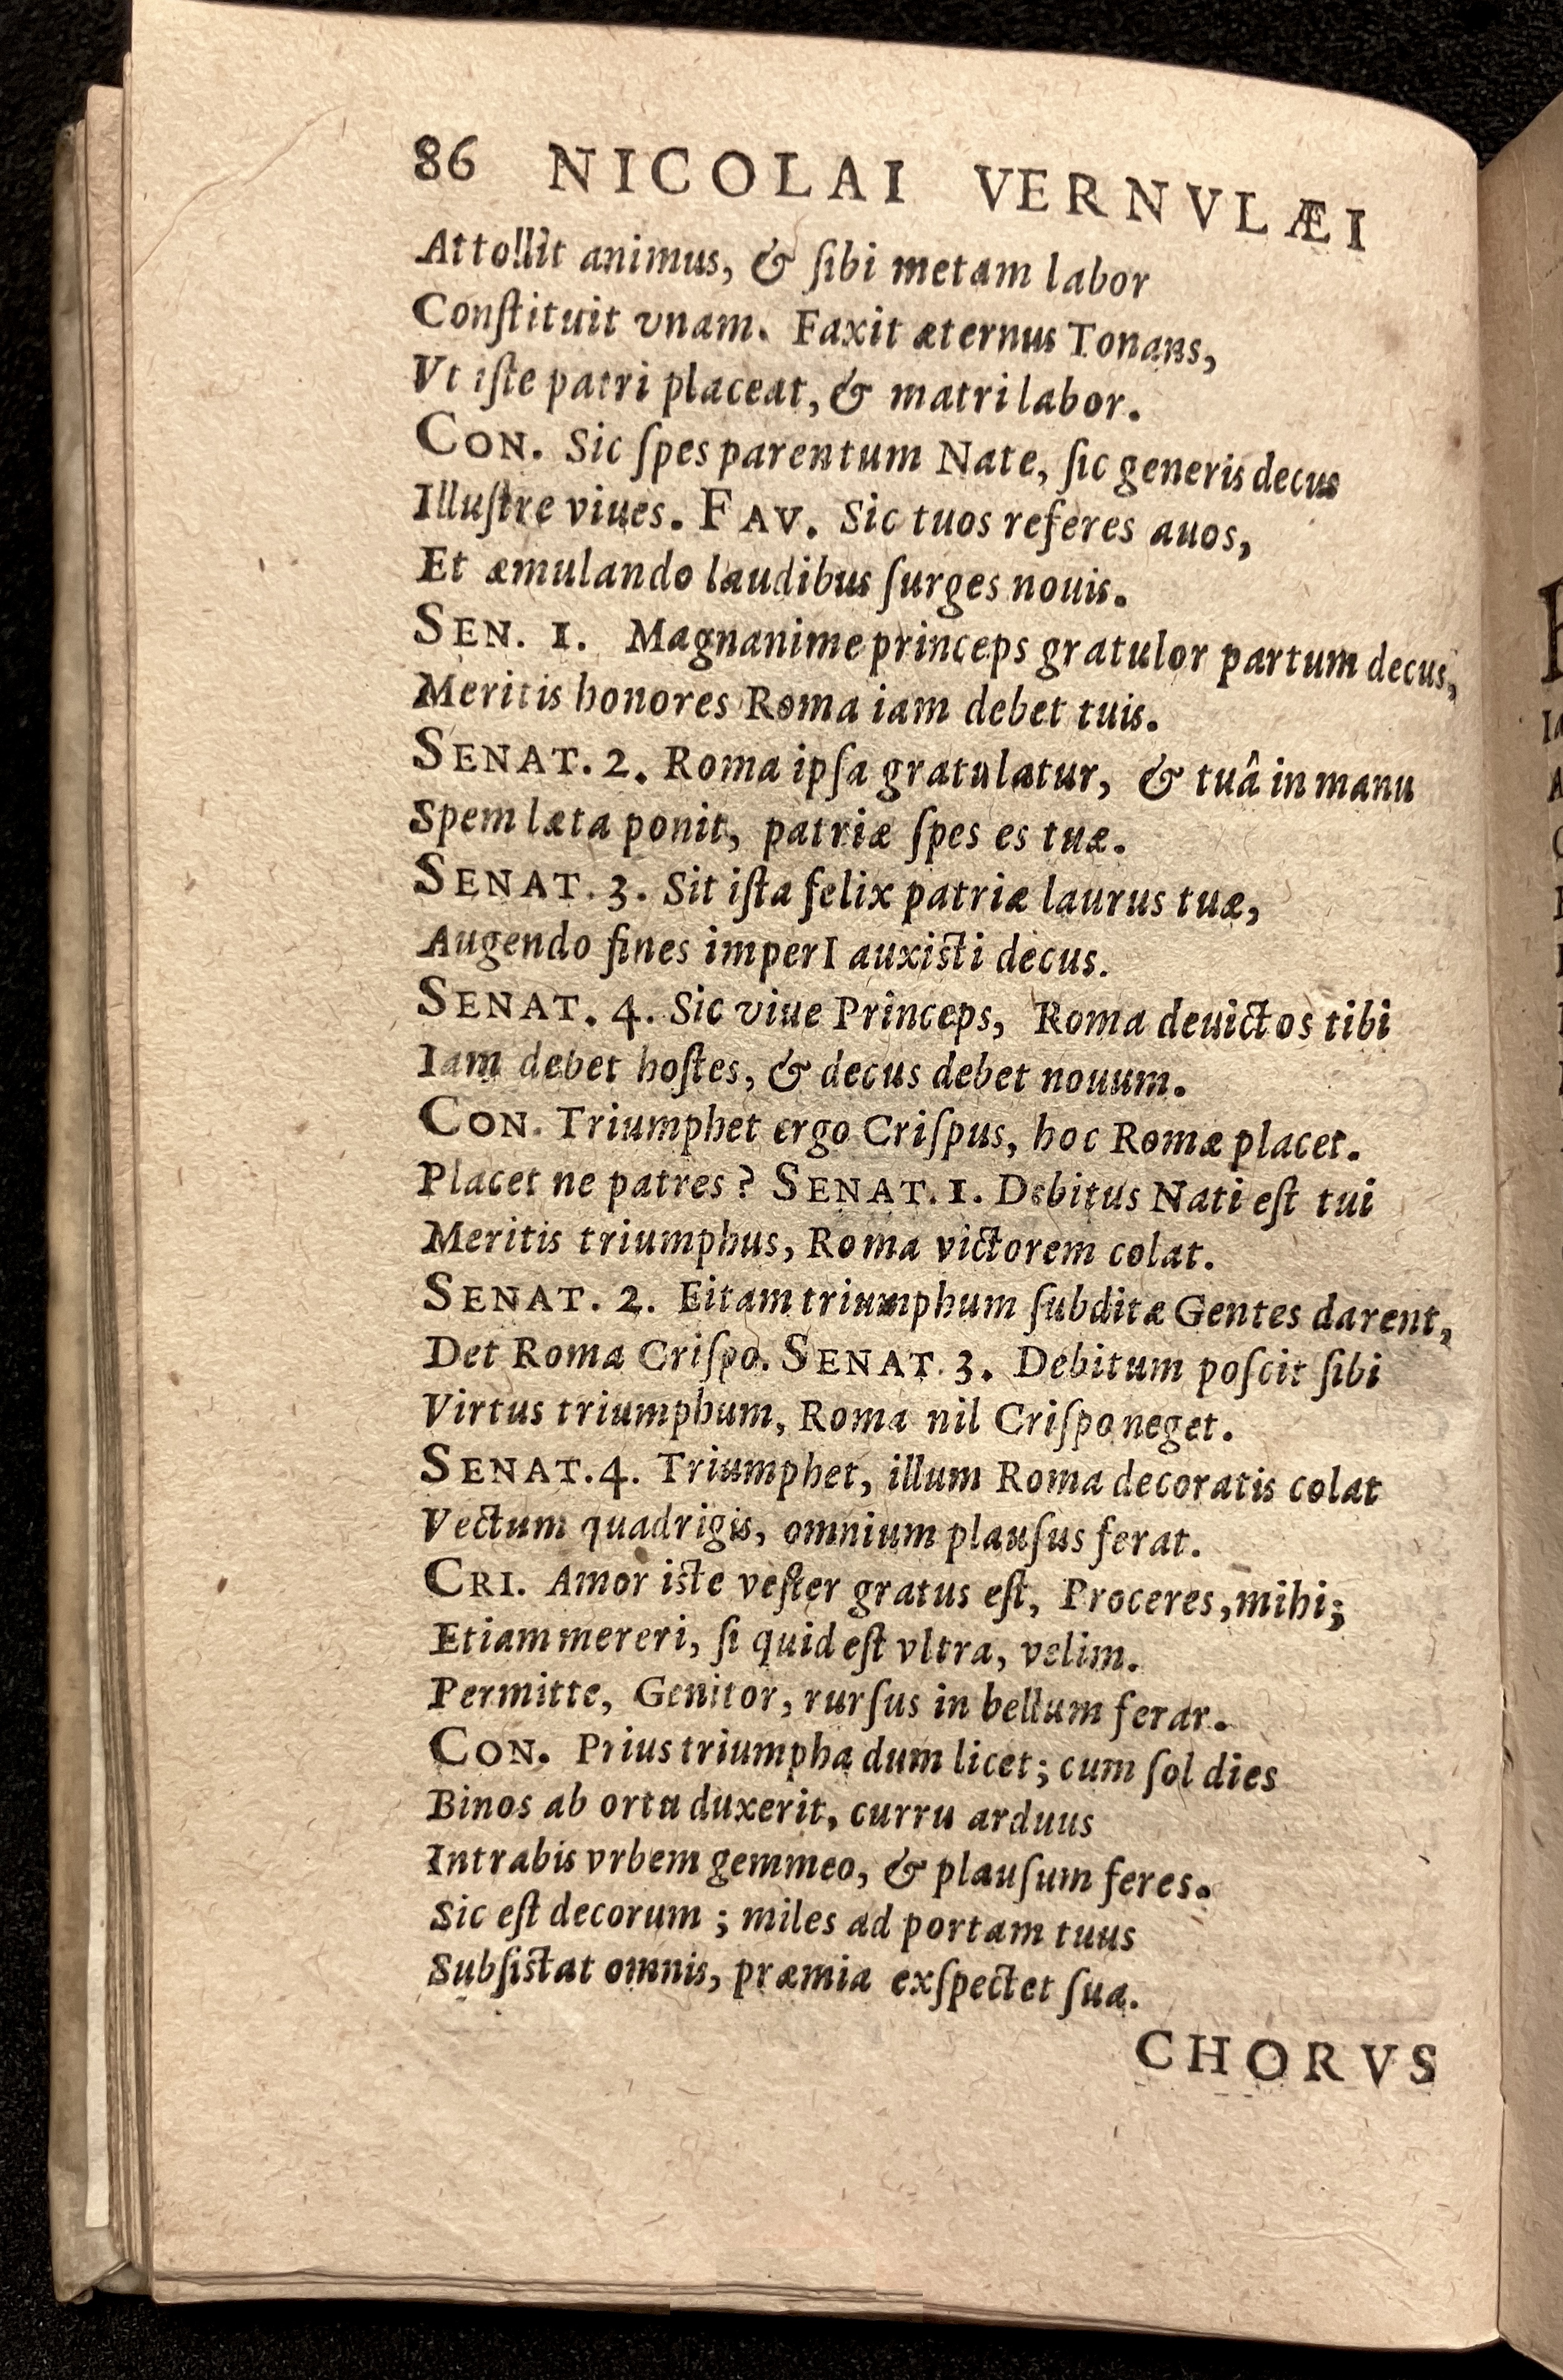 86 NICOLAI VERNVLÆI
Attollit animus, & ſibi metam labor
Conſtituit vnam. Faxit æternus Tonans,
Vt iſte patri placeat, & matri labor.
CON. Sic ſpes parentum Nate, ſic generis decus
Illuſtre viues. FAV. Sic tuos referes auos,
Et æmulando laudibus ſurges nouis.
SEN. 1. Magnanime princeps gratulor partum decus,
Meritis honores Roma iam debet tuis.
SENAT. 2. Roma ipſa gratulatur, & tuâ in manu
Spem læta ponit, patriæ ſpes es tuæ.
SENAT. 3. Sit iſta felix patriæ laurus tuæ,
Augendo fines imperI auxisti decus.
SENAT. 4. Sic viue Princeps, Roma deuictos tibi
Iam debet hoſtes, & decus debet nouum.
CON. Triumphet ergo Criſpus, hoc Romæ placet.
Placet ne patres? SENAT. 1. Debitus Nati eſt tui
Meritis triumphus, Roma victorem colat.
SENAT. 2. Eitam triumphum ſubditæ Gentes darent,
Det Roma Criſpo. SENAT. 3. Debitum poſcit ſibi
Virtus triumphum, Roma nil Criſpo neget.
SENAT. 4. Triumphet, illum Roma decoratis colat
Vectum quadrigis, omnium plauſus ferat.
CRI. Amor iste veſter gratus eſt, Proceres, mihi;
Etiam mereri, ſi quid eſt vltra, velim.
Permitte, Genitor, rurſus in bellum ferar.
CON. Prius triumpha dum licet; cum ſol dies
Binos ab ortu duxerit, curru arduus
Intrabis vrbem gemmeo, & plauſum feres.
Sic eſt decorum; miles ad portam tuus
Subſistat omnis, præmia exſpectet ſua.
CHORVS